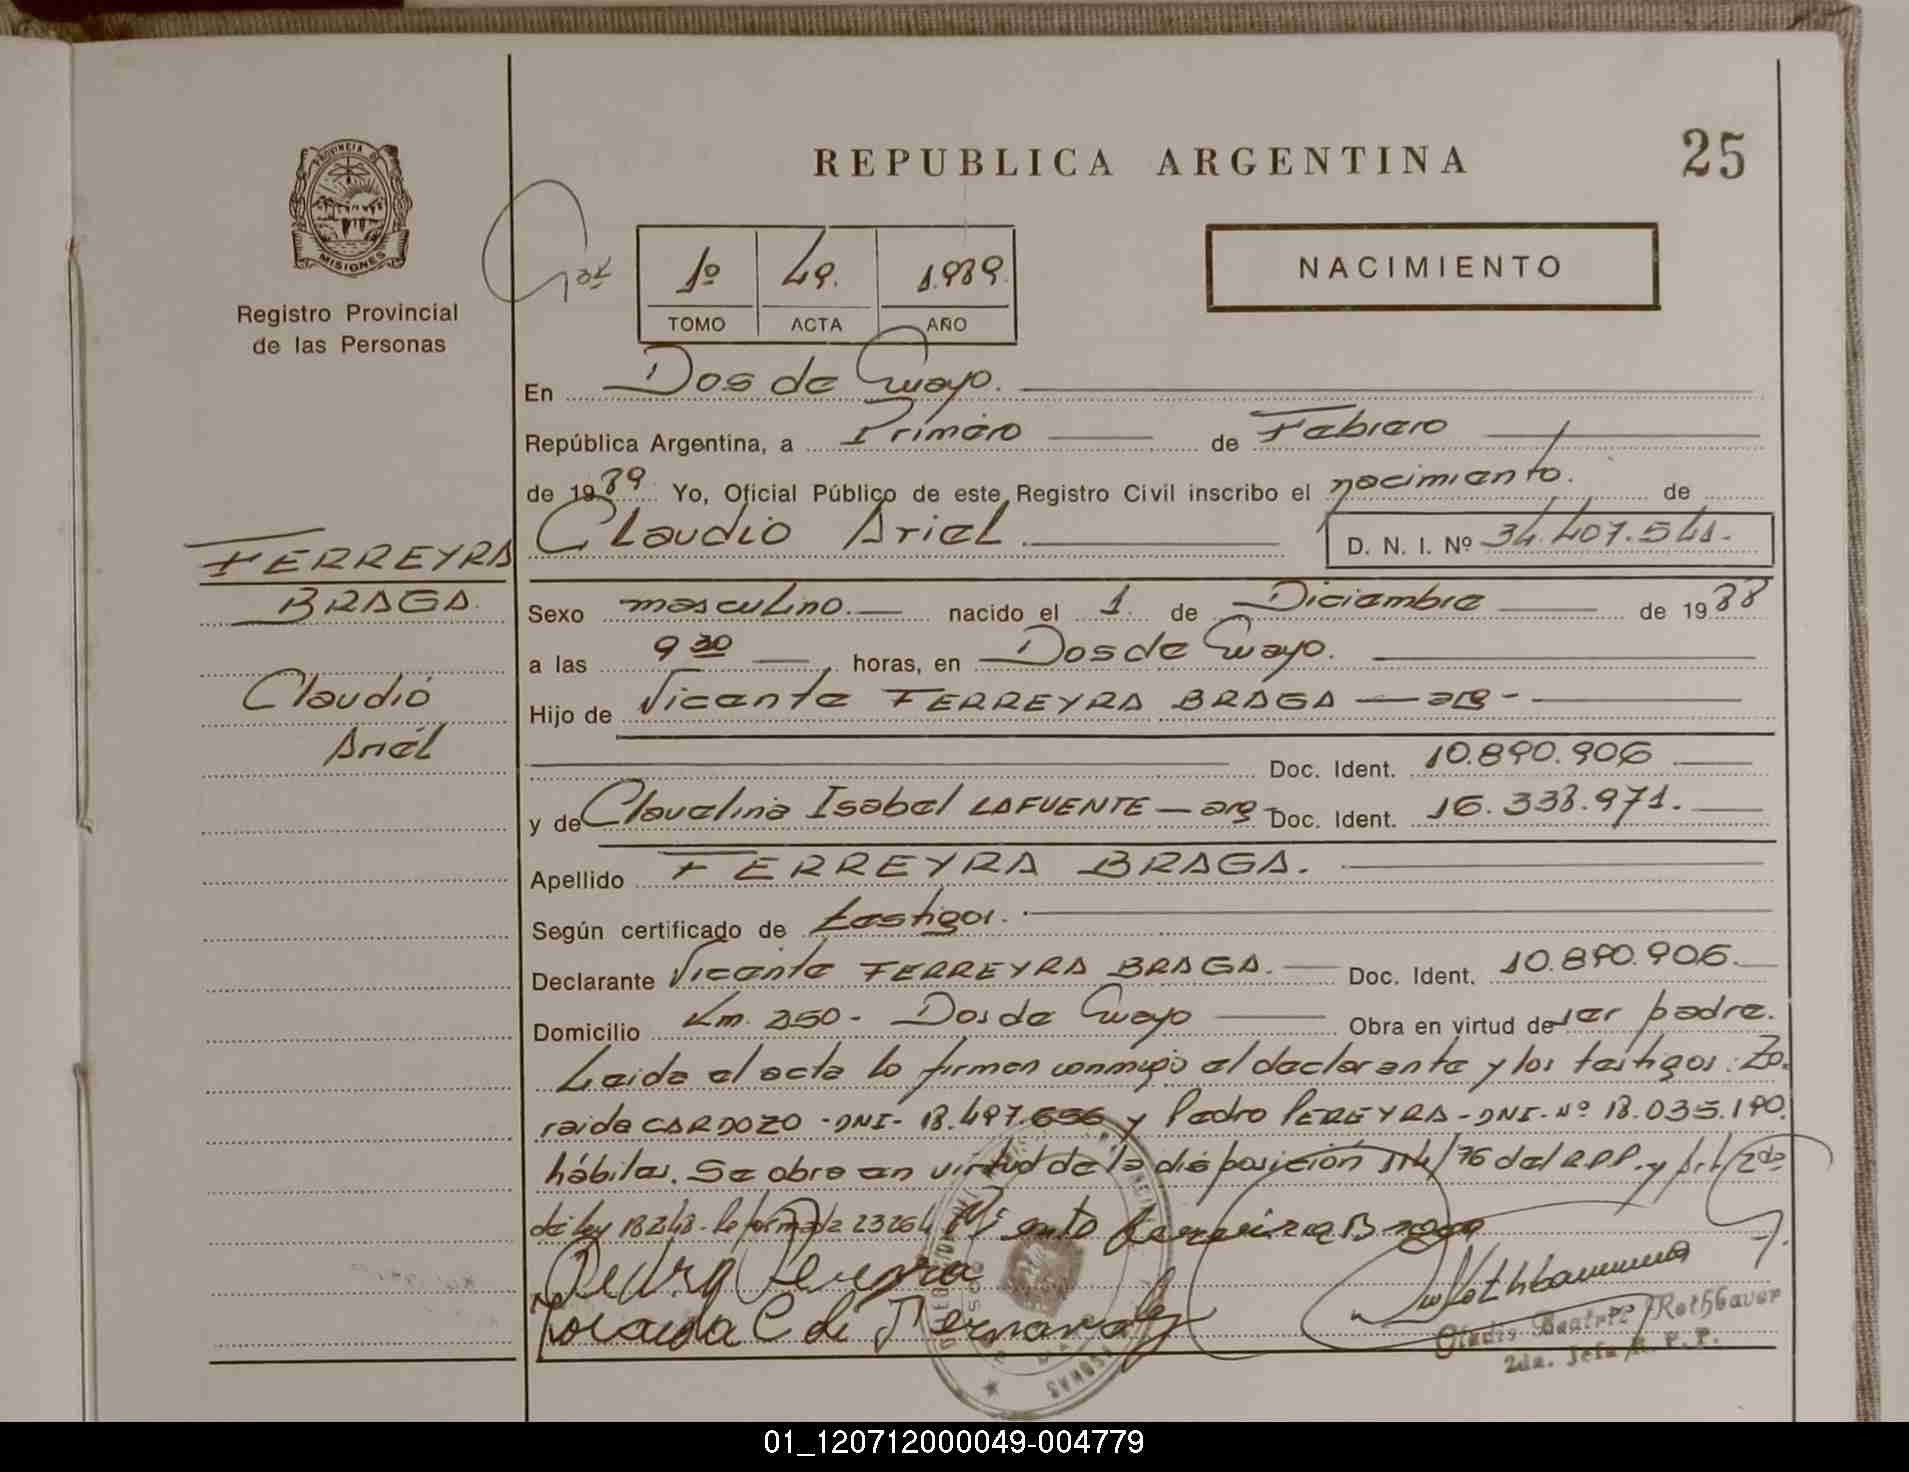 REPUBLICA ARGENTINA
25
PROVINCIA DE
MISIONES
Registro Provincial
de las Personas
1º 49. 1.989.
TOMO ACTA AÑO
NACIMIENTO
En Dos de Mayo.
República Argentina, a Primero de Febrero
de 1989 Yo, Oficial Público de este Registro Civil inscribo el nacimiento. de
Claudio Ariel D. N. I. Nº 34.407.541.
FERREYRA
BRAGA.
Claudio
Ariel
Sexo masculino. nacido el 1. de Diciembre de 1988
a las 9 30 horas, en Dos de Mayo.
Hijo de Vicente FERREYRA BRAGA — arg -
Doc. Ident. 10.890.906
y de Claudelina Isabel LAFUENTE — arg - Doc. Ident. 16.338.971.
Apellido FERREYRA BRAGA.
Según certificado de testigos.
Declarante Vicente FERREYRA BRAGA. Doc. Ident. 10.890.906.
Domicilio Km. 250 - Dos de Mayo Obra en virtud de ser padre.
Leida el acta lo firman conmigo el declarante y los testigos: Zo.
raida CARDOZO - DNI - 18.497.656 y Pedro PEREYRA - DNI - Nº 18.035.190.
hábiles. Se obra en virtud de la disposición /76 del R.P.P. y Art. 2do
de ley 18248 - 23264
Ferreira Braga
Pedro Pereyra
Zoraida C de
Gladis Beatriz Rothbauer
2da. Jefa R. P. P.
01_120712000049-004779